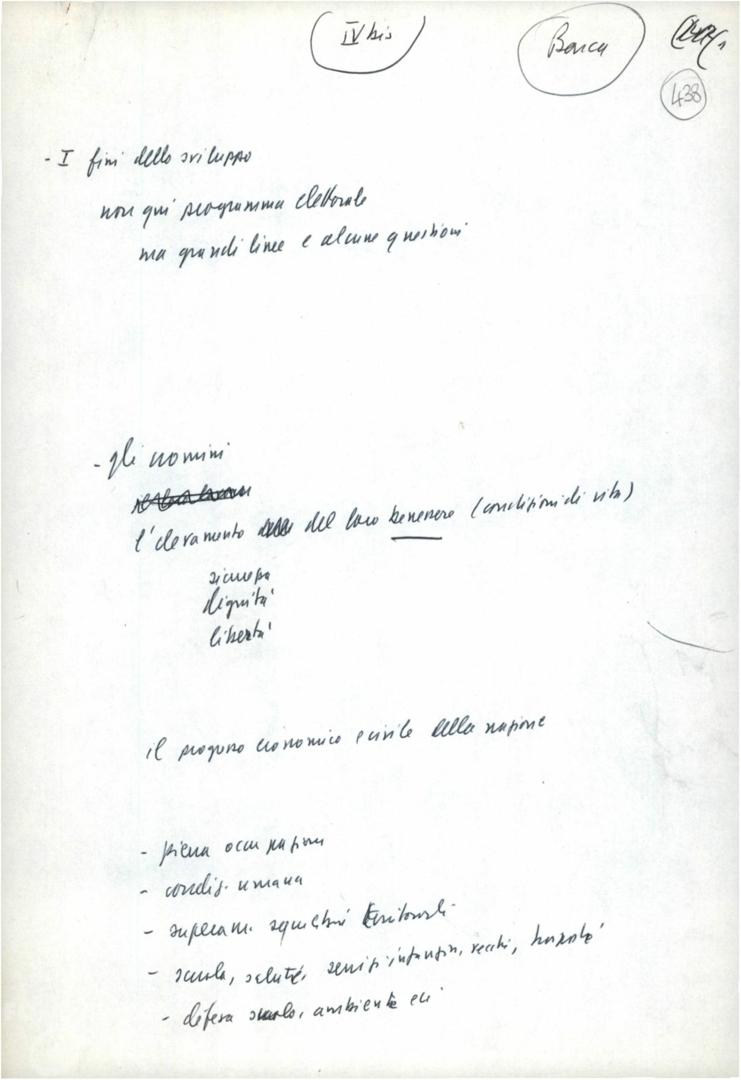 IV bis
438
- I fini dello sviluppo
non qui programma elettorale
ma grandi linee e alcune questioni
- gli uomini
l'elevamento del loro benessere (condizioni di vita)
sicurezza
dignità
libertà
il progresso economico e civile della nazione
- piena occupazione
- condiz. umana
- superam. squilibri territoriali
- scuola, salute, servizi infanzia, vecchi,
- difesa suolo, ambiente ecc